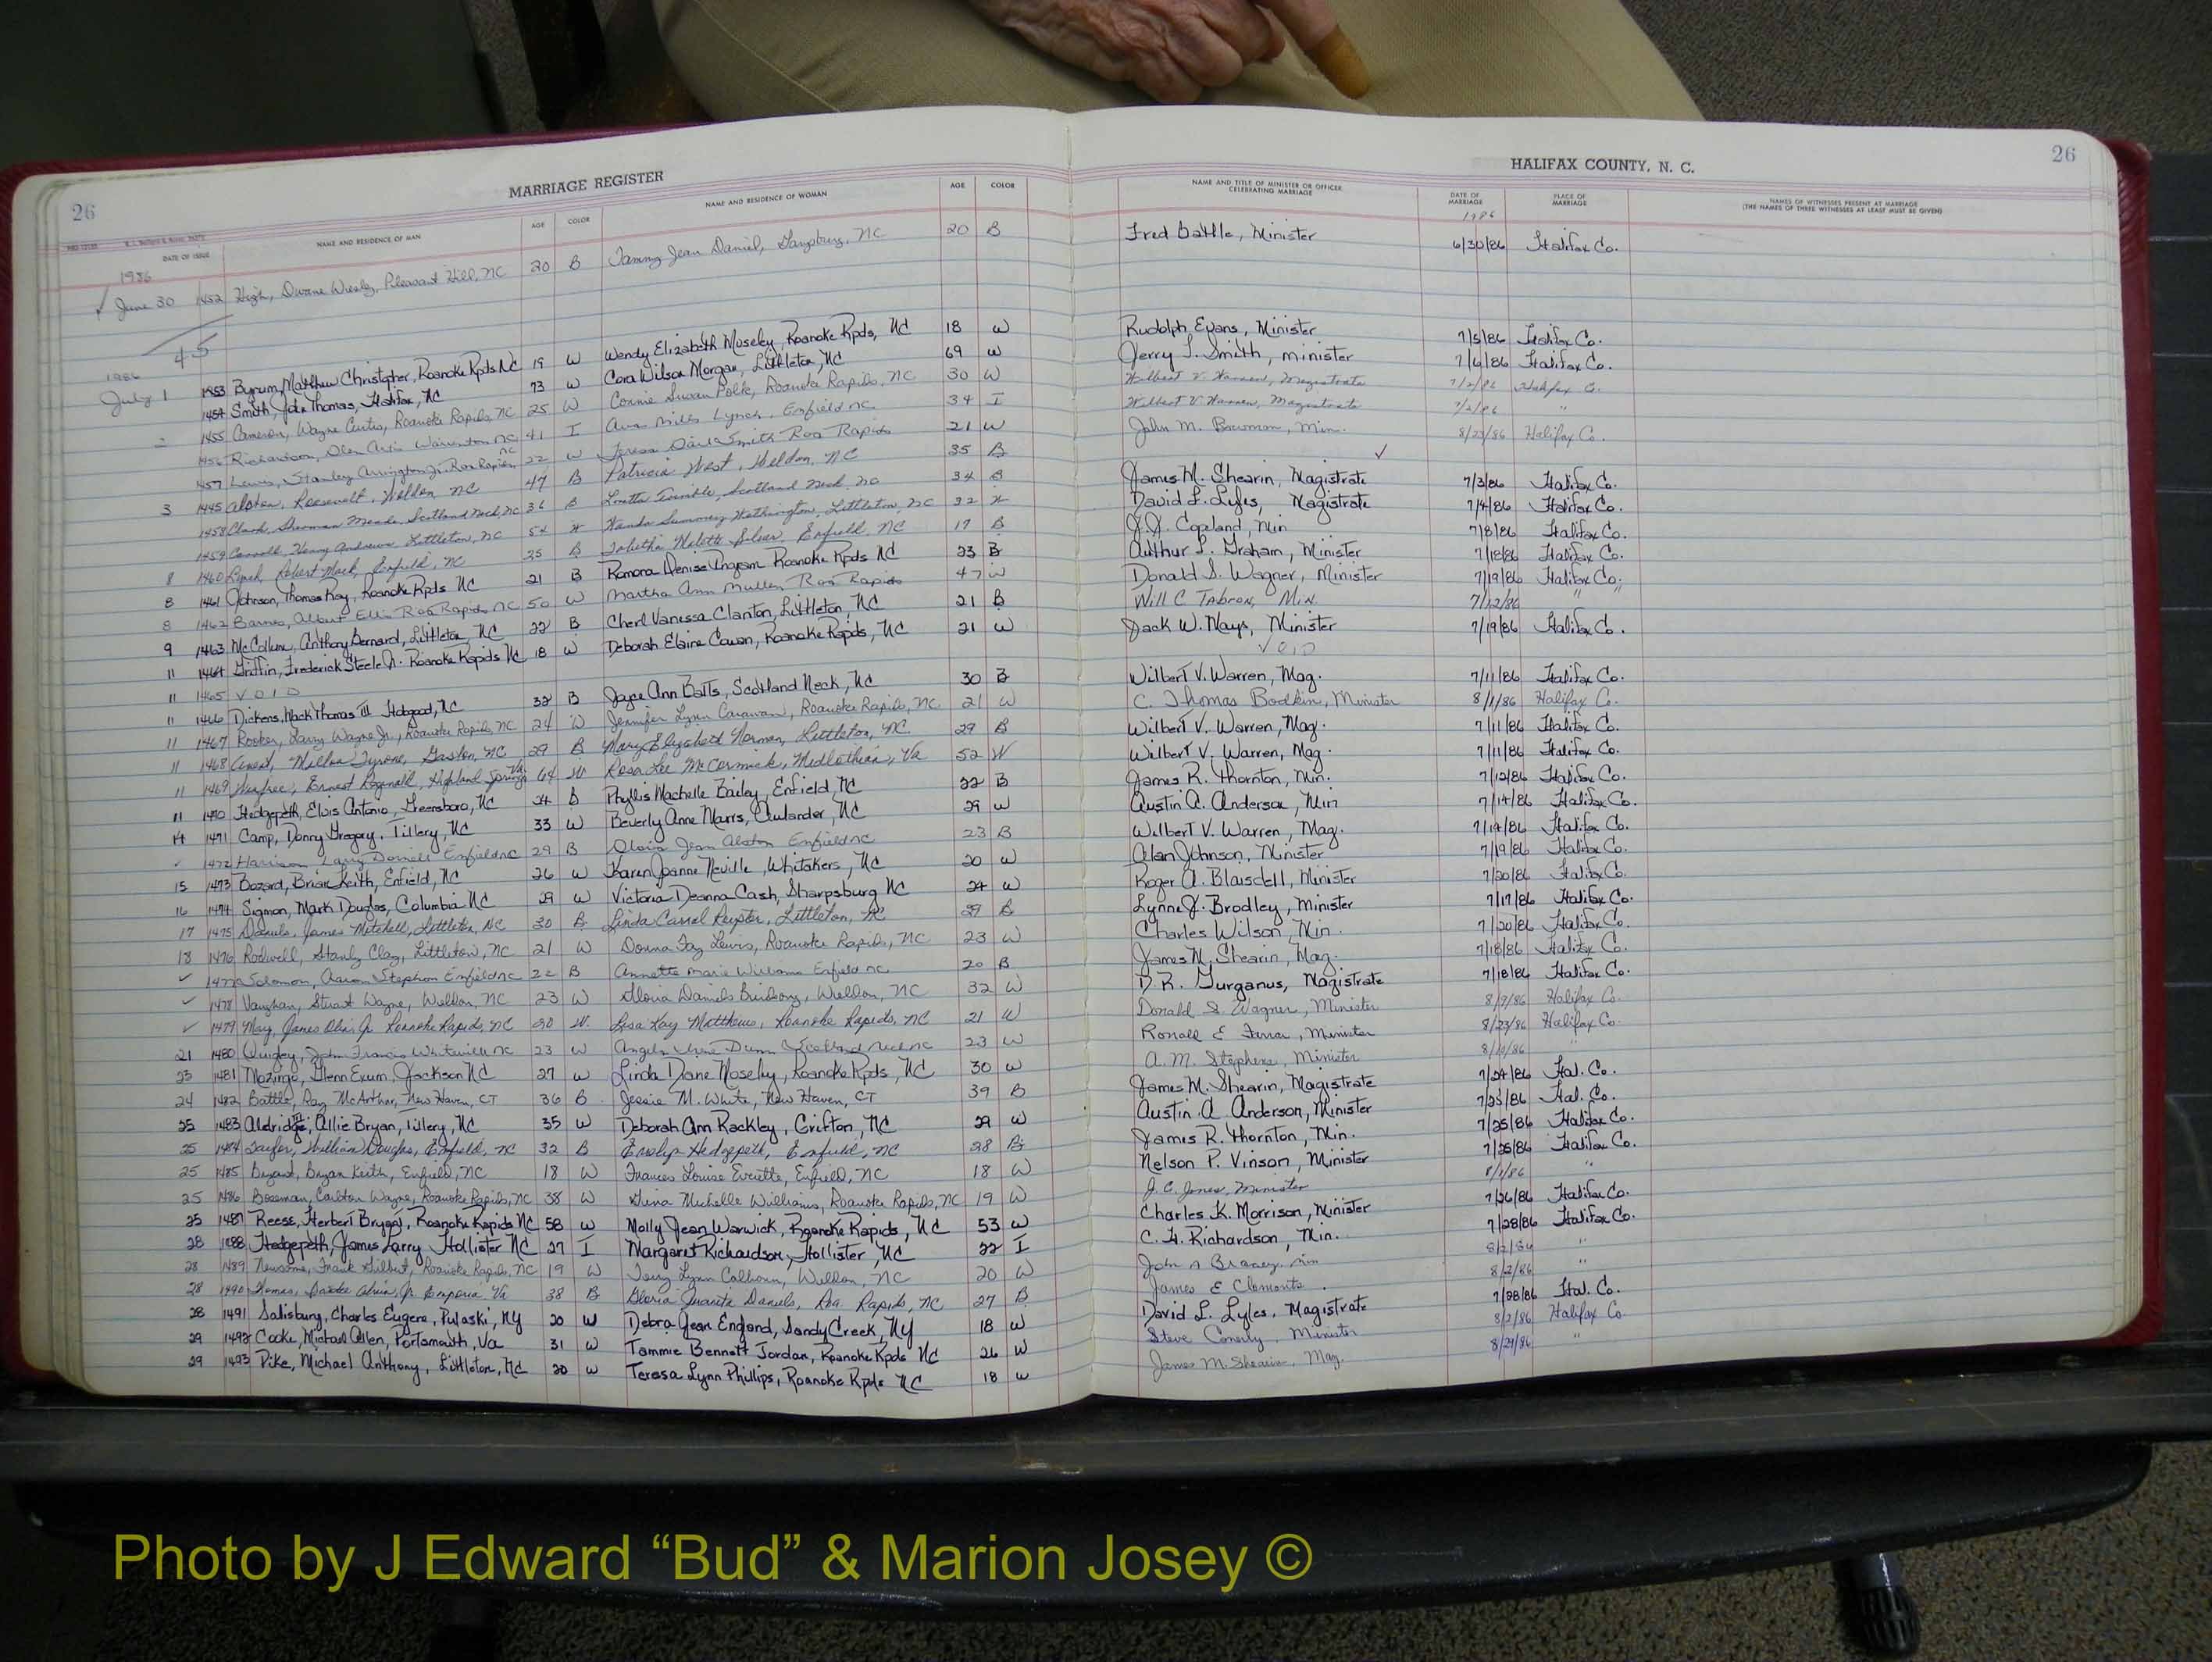 26
MARRIAGE REGISTER
HALIFAX COUNTY, N. C.
26
DATE OF ISSUE NAME AND RESIDENCE OF MAN AGE COLOR NAME AND RESIDENCE OF WOMAN AGE COLOR NAME AND TITLE OF MINISTER OR OFFICER CELEBRATING MARRIAGE DATE OF MARRIAGE PLACE OF MARRIAGE NAMES OF WITNESSES PRESENT AT MARRIAGE (THE NAMES OF THREE WITNESSES AT LEAST MUST BE GIVEN)
1986 1986
✓ June 30 1452 High, Dwane Wesley, Pleasant Hill, NC 20 B Tammy Jean Daniel, Garysburg, NC 20 B Fred Battle, Minister 6/30/86 Halifax Co.
45
1986
July 1 1453 Byrum, Matthew Christopher, Roanoke Rpds NC 19 W Wendy Elizabeth Moseley, Roanoke Rpds, NC 18 W Rudolph Evans, Minister 7/5/86 Halifax Co.
1454 Smith, John Thomas, Halifax, NC 73 W Cora Wilson Morgan, Littleton, NC 69 W Jerry L. Smith, minister 7/6/86 Halifax Co.
2 1455 Cameron, Wayne Curtis, Roanoke Rapids, NC 25 W Connie Susan Polk, Roanoke Rapids, NC 30 W Wilbert V. Warren, Magistrate 7/2/86 Halifax Co.
1456 Richardson, Olen Warrenton NC 41 I Ava Miles Lynch, Enfield NC 34 I Wilbert V. Warren, Magistrate 7/2/86 "
1457 Lewis, Stanley Arrington Jr. Roa Rapids NC 22 W Teresa Smith Roa Rapids 21 W John M. Bowman, Min. 8/23/86 Halifax Co.
3 1445 Alston, Roosevelt, Weldon, NC 47 B Patricia West, Weldon, NC 35 B ✓
1458 Clark, Sherman Meade, Scotland Neck, NC 36 B Loretta Scotland Neck, NC 34 B James M. Shearin, Magistrate 7/3/86 Halifax Co.
1459 Carroll, Henry Andrew, Littleton, NC 54 W Wanda Hethington, Littleton, NC 32 W David L. Lyles, Magistrate 7/4/86 Halifax Co.
8 1460 Lynch, Robert Mack, Enfield, NC 25 B Tabitha Silver, Enfield, NC 17 B J.J. Copeland, Min 7/8/86 Halifax Co.
8 1461 Johnson, Thomas Kay, Roanoke Rpds NC 21 B Ramona Denise Ingram Roanoke Rpds NC 23 B Arthur L. Graham, Minister 7/18/86 Halifax Co.
8 1462 Barnes, Albert Ellis Roa Rapids NC 50 W Martha Ann Mullen Roa Rapids 47 W Donald S. Wagner, Minister 7/19/86 Halifax Co.
9 1463 McCollum, Anthony Bernard, Littleton, NC 22 B Cherl Vanessa Clanton, Littleton, NC 21 B Will C Tabron, Min. 7/12/86 " "
11 1464 Griffin, Frederick Steele Jr. Roanoke Rapids NC 18 W Deborah Elaine Cowan, Roanoke Rapids, NC 21 W Jack W. Mays, Minister 7/19/86 Halifax Co.
11 1465 VOID VOID
11 1466 Dickens, Mack Thomas III Hobgood, NC 32 B Joyce Ann Batts, Scotland Neck, NC 30 B Wilbert V. Warren, Mag. 7/11/86 Halifax Co.
11 1467 Rooker, Larry Wayne Jr., Roanoke Rapids, NC 24 W Jennifer Lynn Caravan, Roanoke Rapids, NC 21 W C. Thomas Bodkin, Minister 8/1/86 Halifax Co.
11 1468 Tyrone, Gaston, NC 29 B Mary Elizabeth Norman, Littleton, NC. 29 B Wilbert V. Warren, Mag. 7/11/86 Halifax Co.
11 1469 Winfree, Ernest Reginald, Highland Springs Va. 64 W Rosa Lee McCormick, Midlothian, Va 52 W Wilbert V. Warren, Mag. 7/11/86 Halifax Co.
11 1470 Hedgepeth, Elvis Antonio, Greensboro, NC 24 B Phyllis Machelle Bailey, Enfield, NC 22 B James R. Thornton, Min. 7/12/86 Halifax Co.
14 1471 Camp, Donny Gregory, Tillery, NC 33 W Beverly Anne Marrs, Aulander, NC 29 W Austin A. Anderson, Min 7/14/86 Halifax Co.
✓ 1472 Harrison, Larry Donnell Enfield NC 29 B Gloria Jean Alston Enfield NC 23 B Wilbert V. Warren, Mag. 7/14/86 Halifax Co.
15 1473 Bozard, Brian Keith, Enfield, NC 26 W Karen Joanne Neville, Whitakers, NC 20 W Alan Johnson, Minister 7/19/86 Halifax Co.
16 1474 Sigmon, Mark Douglas, Columbia NC 29 W Victoria Deanna Cash, Sharpsburg NC 24 W Roger A. Blaisdell, Minister 7/20/86 Halifax Co.
17 1475 Daniels, James Mitchell, Littleton, NC 30 B Linda Carrol Littleton, NC 29 B Lynne J. Brodley, Minister 7/17/86 Halifax Co.
18 1476 Rodwell, Stanly Clay, Littleton, NC 21 W Donna Fay Lewis, Roanoke Rapids, NC 23 W Charles Wilson, Min. 7/20/86 Halifax Co.
✓ 1477 Solomon, Aaron Stephon Enfield NC 22 B Annette Marie Williams Enfield NC 20 B James M. Shearin, Mag. 7/18/86 Halifax Co.
✓ 1478 Vaughan, Stuart Wayne, Weldon, NC 23 W Gloria Daniels Birdsong, Weldon, NC 32 W D.R. Gurganus, Magistrate 7/18/86 Halifax Co.
✓ 1479 May, James Olin Jr. Roanoke Rapids, NC 20 W Lisa Kay Matthews, Roanoke Rapids, NC 21 W Donald S. Wagner, Minister 8/9/86 Halifax Co.
21 1480 Quigley, John Francis Whiteville NC 23 W Angela Dunn Scotland Neck NC 23 W Ronald E Minister 8/23/86 Halifax Co.
23 1481 Mozingo, Glenn Exum, Jackson NC 27 W Linda Diane Moseley, Roanoke Rpds, NC 30 W A. M. Stephens, Minister "
24 1482 Battle, Ray McArthur, New Haven, CT 36 B Jessie M. White, New Haven, CT 39 B James M. Shearin, Magistrate 7/24/86 Hal. Co.
25 1483 Aldridge, III Allie Bryan, Tillery, NC 35 W Deborah Ann Rackley, Grifton, NC 29 W Austin A Anderson, Minister 7/25/86 Hal. Co.
25 1484 Taylor, William Douglas, Enfield, NC 32 B Evelyn Hedgepeth, Enfield, NC 28 B James R. Thornton, Min. 7/25/86 Halifax Co.
25 1485 Bryant, Bryan Keith, Enfield, NC 18 W Frances Louise Everette, Enfield, NC 18 W Nelson P. Vinson, Minister 7/25/86 Halifax Co.
25 1486 Boseman, Carlton Wayne, Roanoke Rapids, NC 38 W Gina Michelle Williams, Roanoke Rapids, NC 19 W J. C. Jones, Minister "
25 1487 Reese, Herbert Bryant, Roanoke Rapids NC 58 W Molly Jean Warwick, Roanoke Rapids, NC 53 W Charles K. Morrison, Minister 7/26/86 Halifax Co.
28 1488 Hedgepeth, James Larry Hollister NC 27 I Margaret Richardson, Hollister, NC 22 I C. H. Richardson, Min. 7/28/86 Halifax Co.
28 1489 Newsome, Frank Gilbert, Roanoke Rapids, NC 19 W Terry Lynn Calhoun, Weldon, NC 20 W John A min 8/2/86 "
28 1490 Thomas, Jr. Emporia Va 38 B Gloria Juanita Daniels, Roa. Rapids, NC 27 B James E Clements 8/2/86 "
28 1491 Salisbury, Charles Eugene, Pulaski, NY 20 W Debra Jean England, Sandy Creek, NY 18 W David L. Lyles, Magistrate 7/28/86 Hal. Co.
29 1492 Cooke, Michael Allen, Portsmouth, Va 31 W Tammie Bennett Jordan, Roanoke Rpds NC 26 W Steve Conerly, Minister 8/2/86 Halifax Co.
29 1493 Pike, Michael Anthony, Littleton, NC 20 W Teresa Lynn Phillips, Roanoke Rpds NC 18 W James M. Shearin, Mag. 8/29/86 "
Photo by J Edward “Bud” & Marion Josey ©